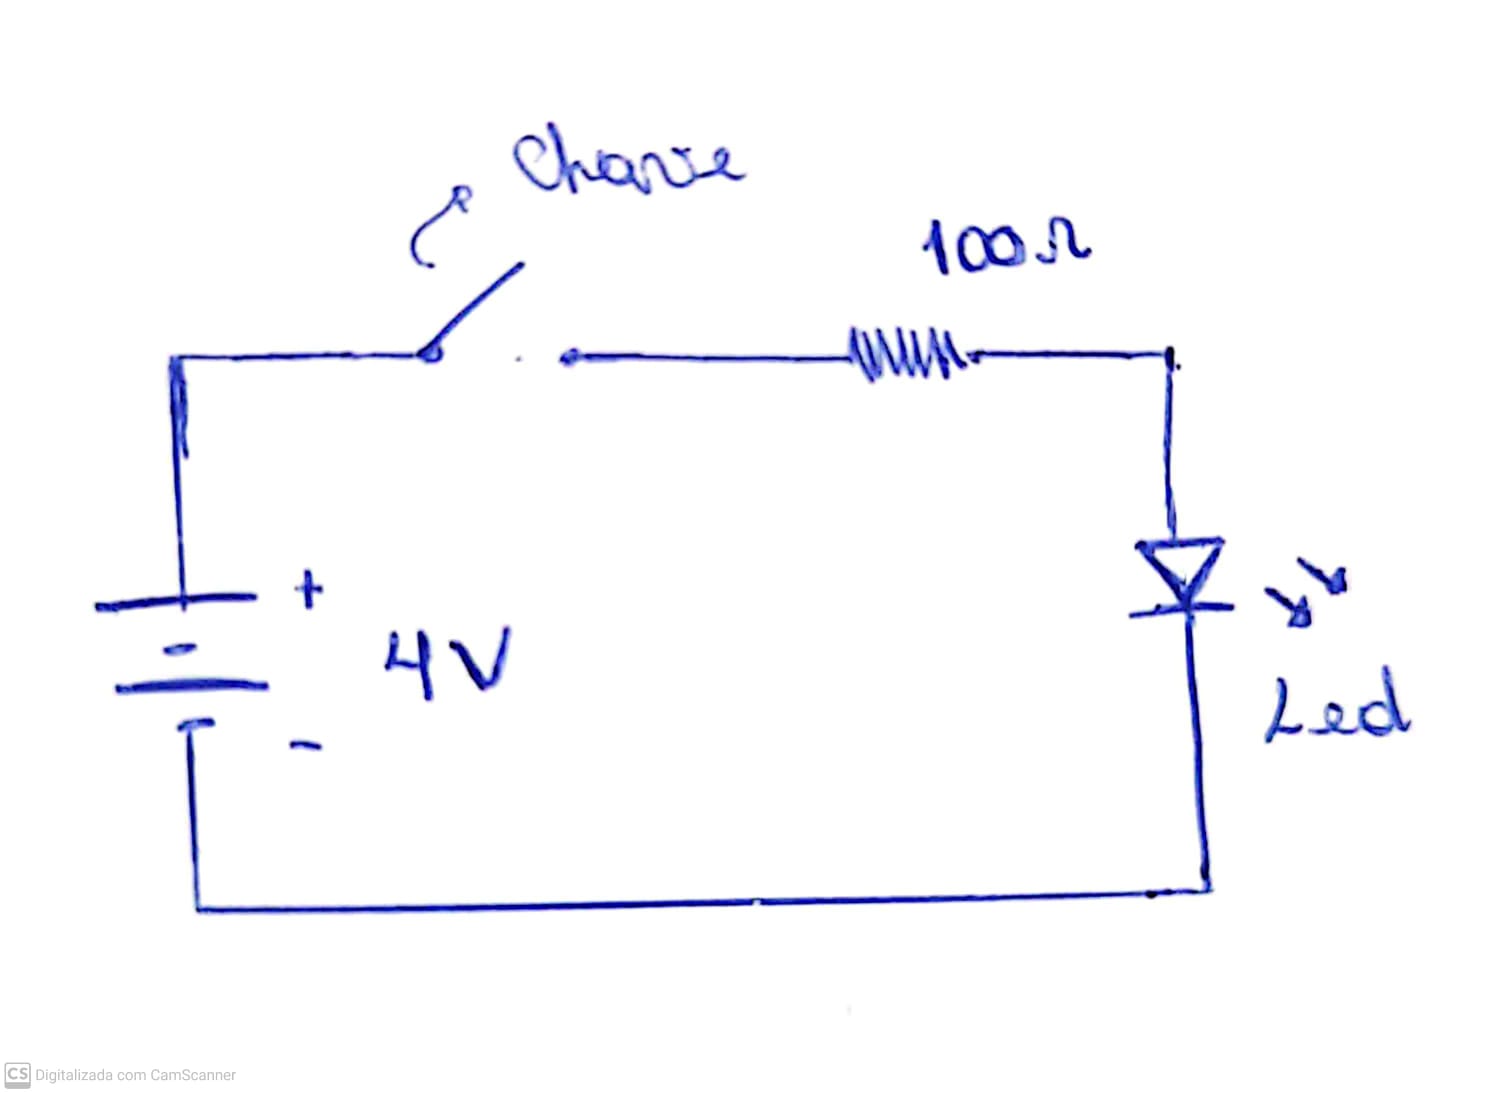 Chave
100Ω
+
4V
-
Led
CS Digitalizada com CamScanner